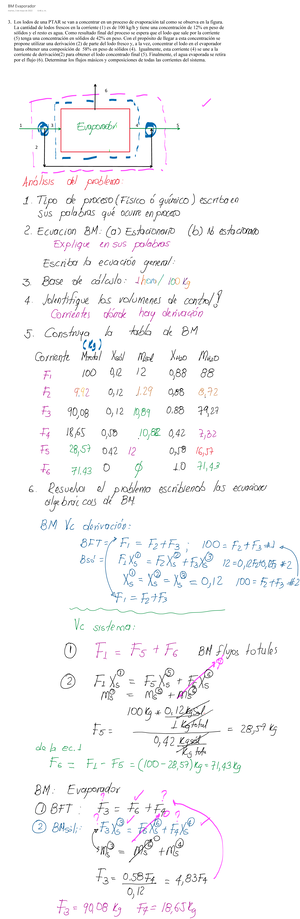 BM Evaporador
3. Los lodos de una PTAR se van a concentrar en un proceso de evaporación tal como se observa en la figura.
La cantidad de lodos frescos en la corriente (1) es de 100 kg/h y tiene una concentración de 12% en peso de
sólidos y el resto es agua. Como resultado final del proceso se espera que el lodo que sale por la corriente
(5) tenga una concentración en sólidos de 42% en peso. Con el propósito de llegar a esta concentración se
propone utilizar una derivación (2) de parte del lodo fresco y, a la vez, concentrar el lodo en el evaporador
hasta obtener una composición de 58% en peso de sólidos (4). Igualmente, esta corriente (4) se une a la
corriente de derivación(2) para obtener el lodo concentrado final (5). Finalmente, el agua evaporada se retira
por el flujo (6). Determinar los flujos másicos y composiciones de todas las corrientes del sistema.
6
1 3 Evaporador 4 5
2
Análisis del problema:
1. Tipo de proceso (Físico ó químico) escriba en
sus palabras qué ocurre en proceso
2. Ecuacion BM: (a) Estacionario (b) No estacionario
Explique en sus palabras
Escriba la ecuación general:
3. Base de cálculo: 1 hora / 100 Kg
4. Identifique los volumenes de control?
Corrientes dónde hay derivación
5. Construya la tabla de BM
(Kg)
Corriente Mtotal Xsól Msól XH2O MH2O
F1 100 0,12 12 0,88 88
F2 9.92 0,12 1.29 0.88 8,72
F3 90,08 0,12 10,89 0.88 79,27
F4 18,65 0,58 10,82 0,42 7,82
F5 28,57 0.42 12 0,58 16,57
F6 71.43 0 ∅ 1.0 71,43
6. Resuelva el problema escribiendo las ecuaciones
algebraicas de BM
BM Vc derivación:
BFT = F1 = F2 + F3 ; 100 = F2 + F3 #1
Bsól = F1Xs① = F2Xs② + F3Xs③
Xs① = Xs② = Xs③ = 0,12 100 = F2 + F3 #2
F1 = F2 + F3
Vc sistema:
① F1 = F5 + F6 BM flujos totales
② F1Xs① = F5Xs⑤ + F6Xs⑥
ms① = ms⑤ + ms⑥
F5 = 100 Kg * 0,12 Kgsól / 1 Kg total / 0,42 Kgsól / Kg tot = 28,57 Kg
de la ec. 1
F6 = F1 - F5 = (100 - 28,57) Kg = 71,43 Kg
BM: Evaporador
① BFT: F3 = F6 + F4
② BMsól: F3Xs③ = F6Xs⑥ + F4Xs④
ms③ = ms⑥ + ms④
F3 = 0.58F4 / 0,12 = 4,83F4
F3 = 90,08 Kg F4 = 18,65 Kg